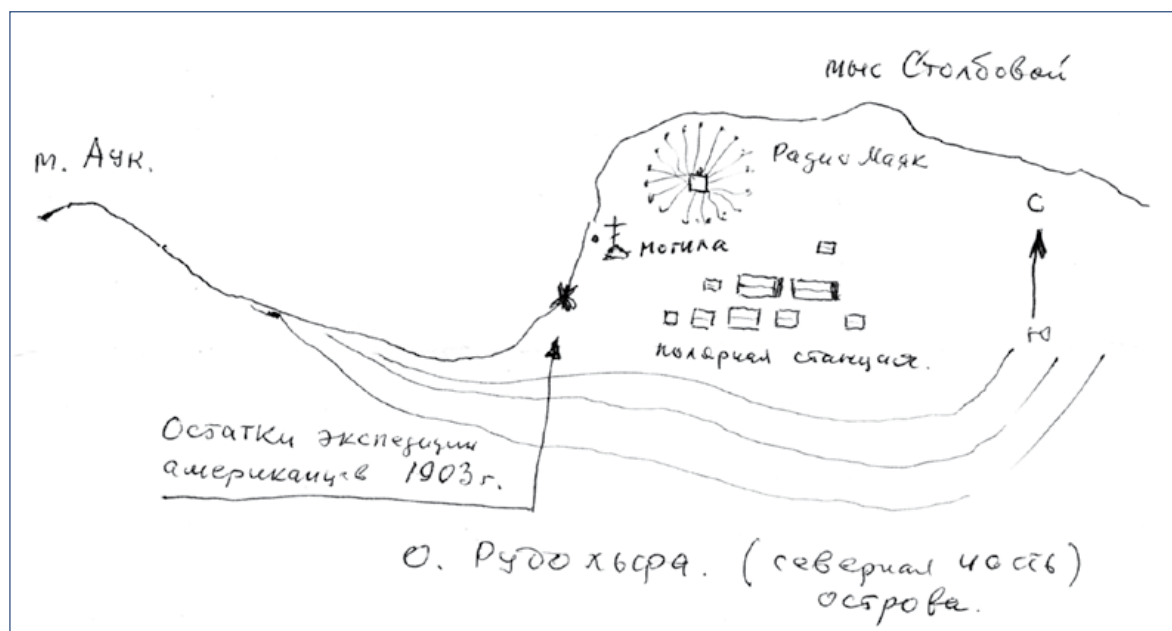 мыс Столбовой
м. Аук.
Радио Маяк
С
могила
Ю
полярная станция.
Остатки экспедиции
американцев 1903 г.
о. Рудольфа. (северная часть)
острова.